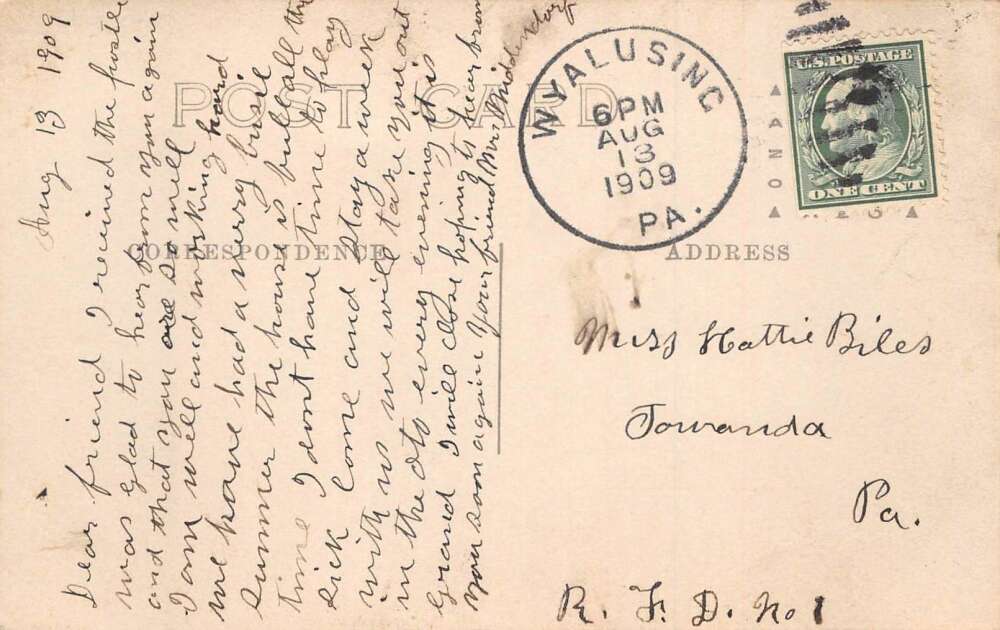 Aug 13 1909
Dear friend I received the postle
was glad to hear from you again
and that you are so well
I am well and working hard
we have had a very busie
summer the house is full all the
time I dont have time to play
sick Come and stay a week
with us we will take you out
in the oto every evening it is
grand I will close hoping to hear from
you soon again Your friend Mrs Middendorf
POST CARD
CORRESPONDENCE
WYALUSING
6PM
AUG
13
1909
PA.
U.S. POSTAGE
ONE CENT
ADDRESS
Miss Hattie Biles
Towanda
Pa.
R. F. D. No 1